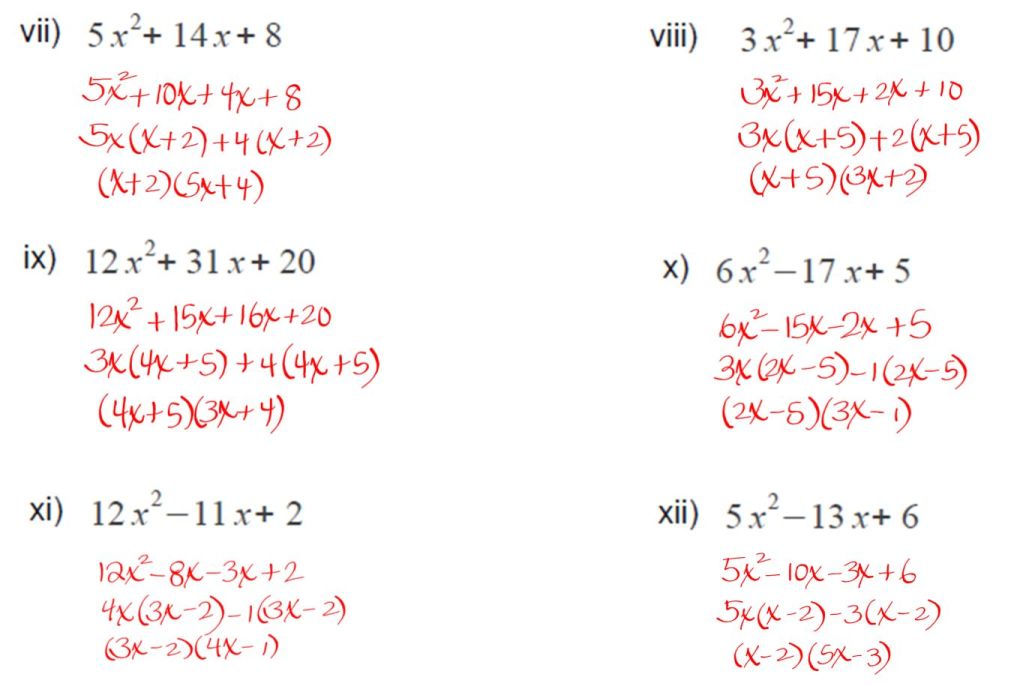 vii) 5x²+ 14x+ 8
5x²+10x+4x+8
5x(x+2)+4(x+2)
(x+2)(5x+4)
viii) 3x²+ 17x+ 10
3x²+15x+2x+10
3x(x+5)+2(x+5)
(x+5)(3x+2)
ix) 12x²+ 31x+ 20
12x²+15x+16x+20
3x(4x+5)+4(4x+5)
(4x+5)(3x+4)
x) 6x²−17x+ 5
6x²−15x−2x+5
3x(2x−5)−1(2x−5)
(2x−5)(3x−1)
xi) 12x²−11x+ 2
12x²−8x−3x+2
4x(3x−2)−1(3x−2)
(3x−2)(4x−1)
xii) 5x²−13x+ 6
5x²−10x−3x+6
5x(x−2)−3(x−2)
(x−2)(5x−3)